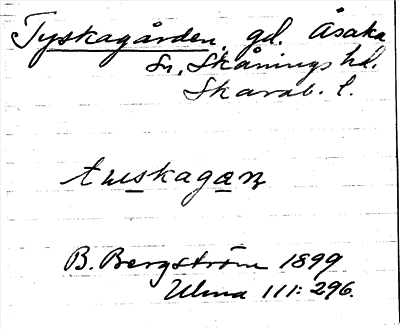 Tyskagården, gd. Åsaka
sn, Skånings hd.
Skarab. l.
tyskagaɳ
B. Bergström 1899
Ulma 111: 296.